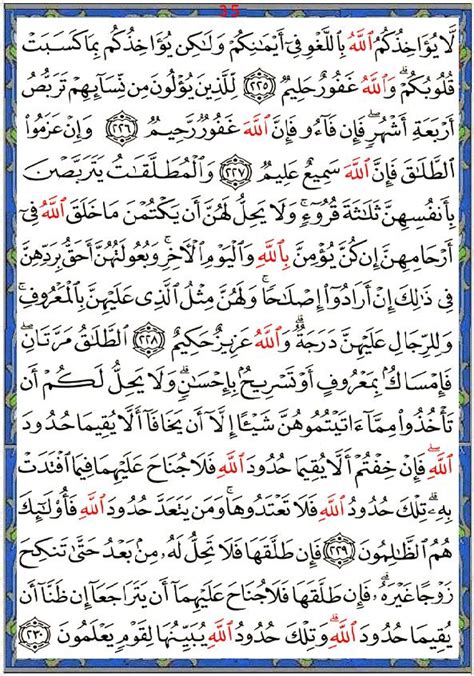 35
لَّا يُؤَاخِذُكُمُ ٱللَّهُ بِٱللَّغْوِ فِىٓ أَيْمَـٰنِكُمْ وَلَـٰكِن يُؤَاخِذُكُم بِمَا كَسَبَتْ
قُلُوبُكُمْ ۗ وَٱللَّهُ غَفُورٌ حَلِيمٌ ﴿٢٢٥﴾ لِّلَّذِينَ يُؤْلُونَ مِن نِّسَآئِهِمْ تَرَبُّصُ
أَرْبَعَةِ أَشْهُرٍ ۖ فَإِن فَآءُو فَإِنَّ ٱللَّهَ غَفُورٌ رَّحِيمٌ ﴿٢٢٦﴾ وَإِنْ عَزَمُوا۟
ٱلطَّلَـٰقَ فَإِنَّ ٱللَّهَ سَمِيعٌ عَلِيمٌ ﴿٢٢٧﴾ وَٱلْمُطَلَّقَـٰتُ يَتَرَبَّصْنَ
بِأَنفُسِهِنَّ ثَلَـٰثَةَ قُرُوٓءٍ ۚ وَلَا يَحِلُّ لَهُنَّ أَن يَكْتُمْنَ مَا خَلَقَ ٱللَّهُ فِىٓ
أَرْحَامِهِنَّ إِن كُنَّ يُؤْمِنَّ بِٱللَّهِ وَٱلْيَوْمِ ٱلْـَٔاخِرِ ۚ وَبُعُولَتُهُنَّ أَحَقُّ بِرَدِّهِنَّ
فِى ذَٰلِكَ إِنْ أَرَادُوٓا۟ إِصْلَـٰحًا ۚ وَلَهُنَّ مِثْلُ ٱلَّذِى عَلَيْهِنَّ بِٱلْمَعْرُوفِ ۚ
وَلِلرِّجَالِ عَلَيْهِنَّ دَرَجَةٌ ۗ وَٱللَّهُ عَزِيزٌ حَكِيمٌ ﴿٢٢٨﴾ ٱلطَّلَـٰقُ مَرَّتَانِ ۖ
فَإِمْسَاكٌۢ بِمَعْرُوفٍ أَوْ تَسْرِيحٌۢ بِإِحْسَـٰنٍ ۗ وَلَا يَحِلُّ لَكُمْ أَن
تَأْخُذُوا۟ مِمَّآ ءَاتَيْتُمُوهُنَّ شَيْـًٔا إِلَّآ أَن يَخَافَآ أَلَّا يُقِيمَا حُدُودَ
ٱللَّهِ ۖ فَإِنْ خِفْتُمْ أَلَّا يُقِيمَا حُدُودَ ٱللَّهِ فَلَا جُنَاحَ عَلَيْهِمَا فِيمَا ٱفْتَدَتْ
بِهِۦ ۗ تِلْكَ حُدُودُ ٱللَّهِ فَلَا تَعْتَدُوهَا ۚ وَمَن يَتَعَدَّ حُدُودَ ٱللَّهِ فَأُو۟لَـٰٓئِكَ
هُمُ ٱلظَّـٰلِمُونَ ﴿٢٢٩﴾ فَإِن طَلَّقَهَا فَلَا تَحِلُّ لَهُۥ مِنۢ بَعْدُ حَتَّىٰ تَنكِحَ
زَوْجًا غَيْرَهُۥ ۗ فَإِن طَلَّقَهَا فَلَا جُنَاحَ عَلَيْهِمَآ أَن يَتَرَاجَعَآ إِن ظَنَّآ أَن
يُقِيمَا حُدُودَ ٱللَّهِ ۗ وَتِلْكَ حُدُودُ ٱللَّهِ يُبَيِّنُهَا لِقَوْمٍ يَعْلَمُونَ ﴿٢٣٠﴾